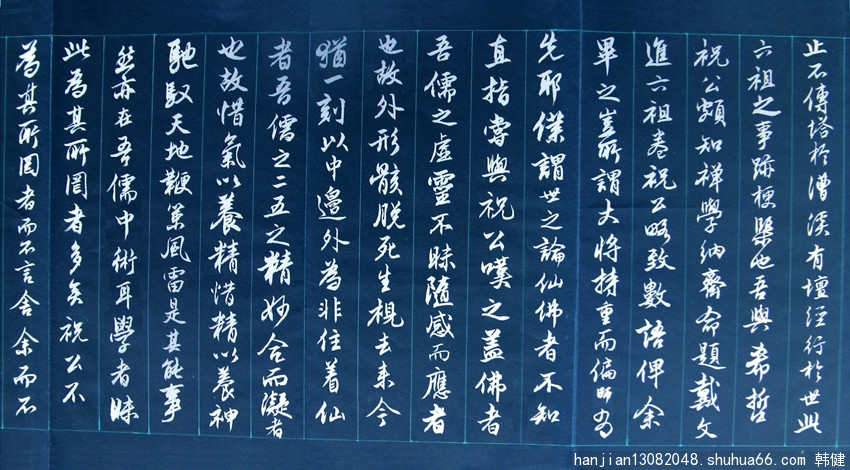 止不傳塔於漕溪有壇經行於世此
六祖之事跡梗槩也吾與希哲
祝公頗知禅學納齋命題戴文
進六祖卷祝公略致數語俾余
畢之豈所謂大將持重而偏師為
先耶僕謂世之論仙佛者不知
直指嘗與祝公嘆之盖佛者
吾儒之虛靈不昧隨感而應者
也故外形骸脱死生視去来今
猶一刻以中邉外為非住着仙
者吾儒之二五之精妙合而凝者
也故惜氣以養精惜精以養神
馳馭天地鞭篥風雷是其能事
然亦在吾儒中術耳學者昧
此為其所罔者多矣祝公不
為其所罔者而不言舍余而不
hanjian13082048.shuhua66.com 韩健